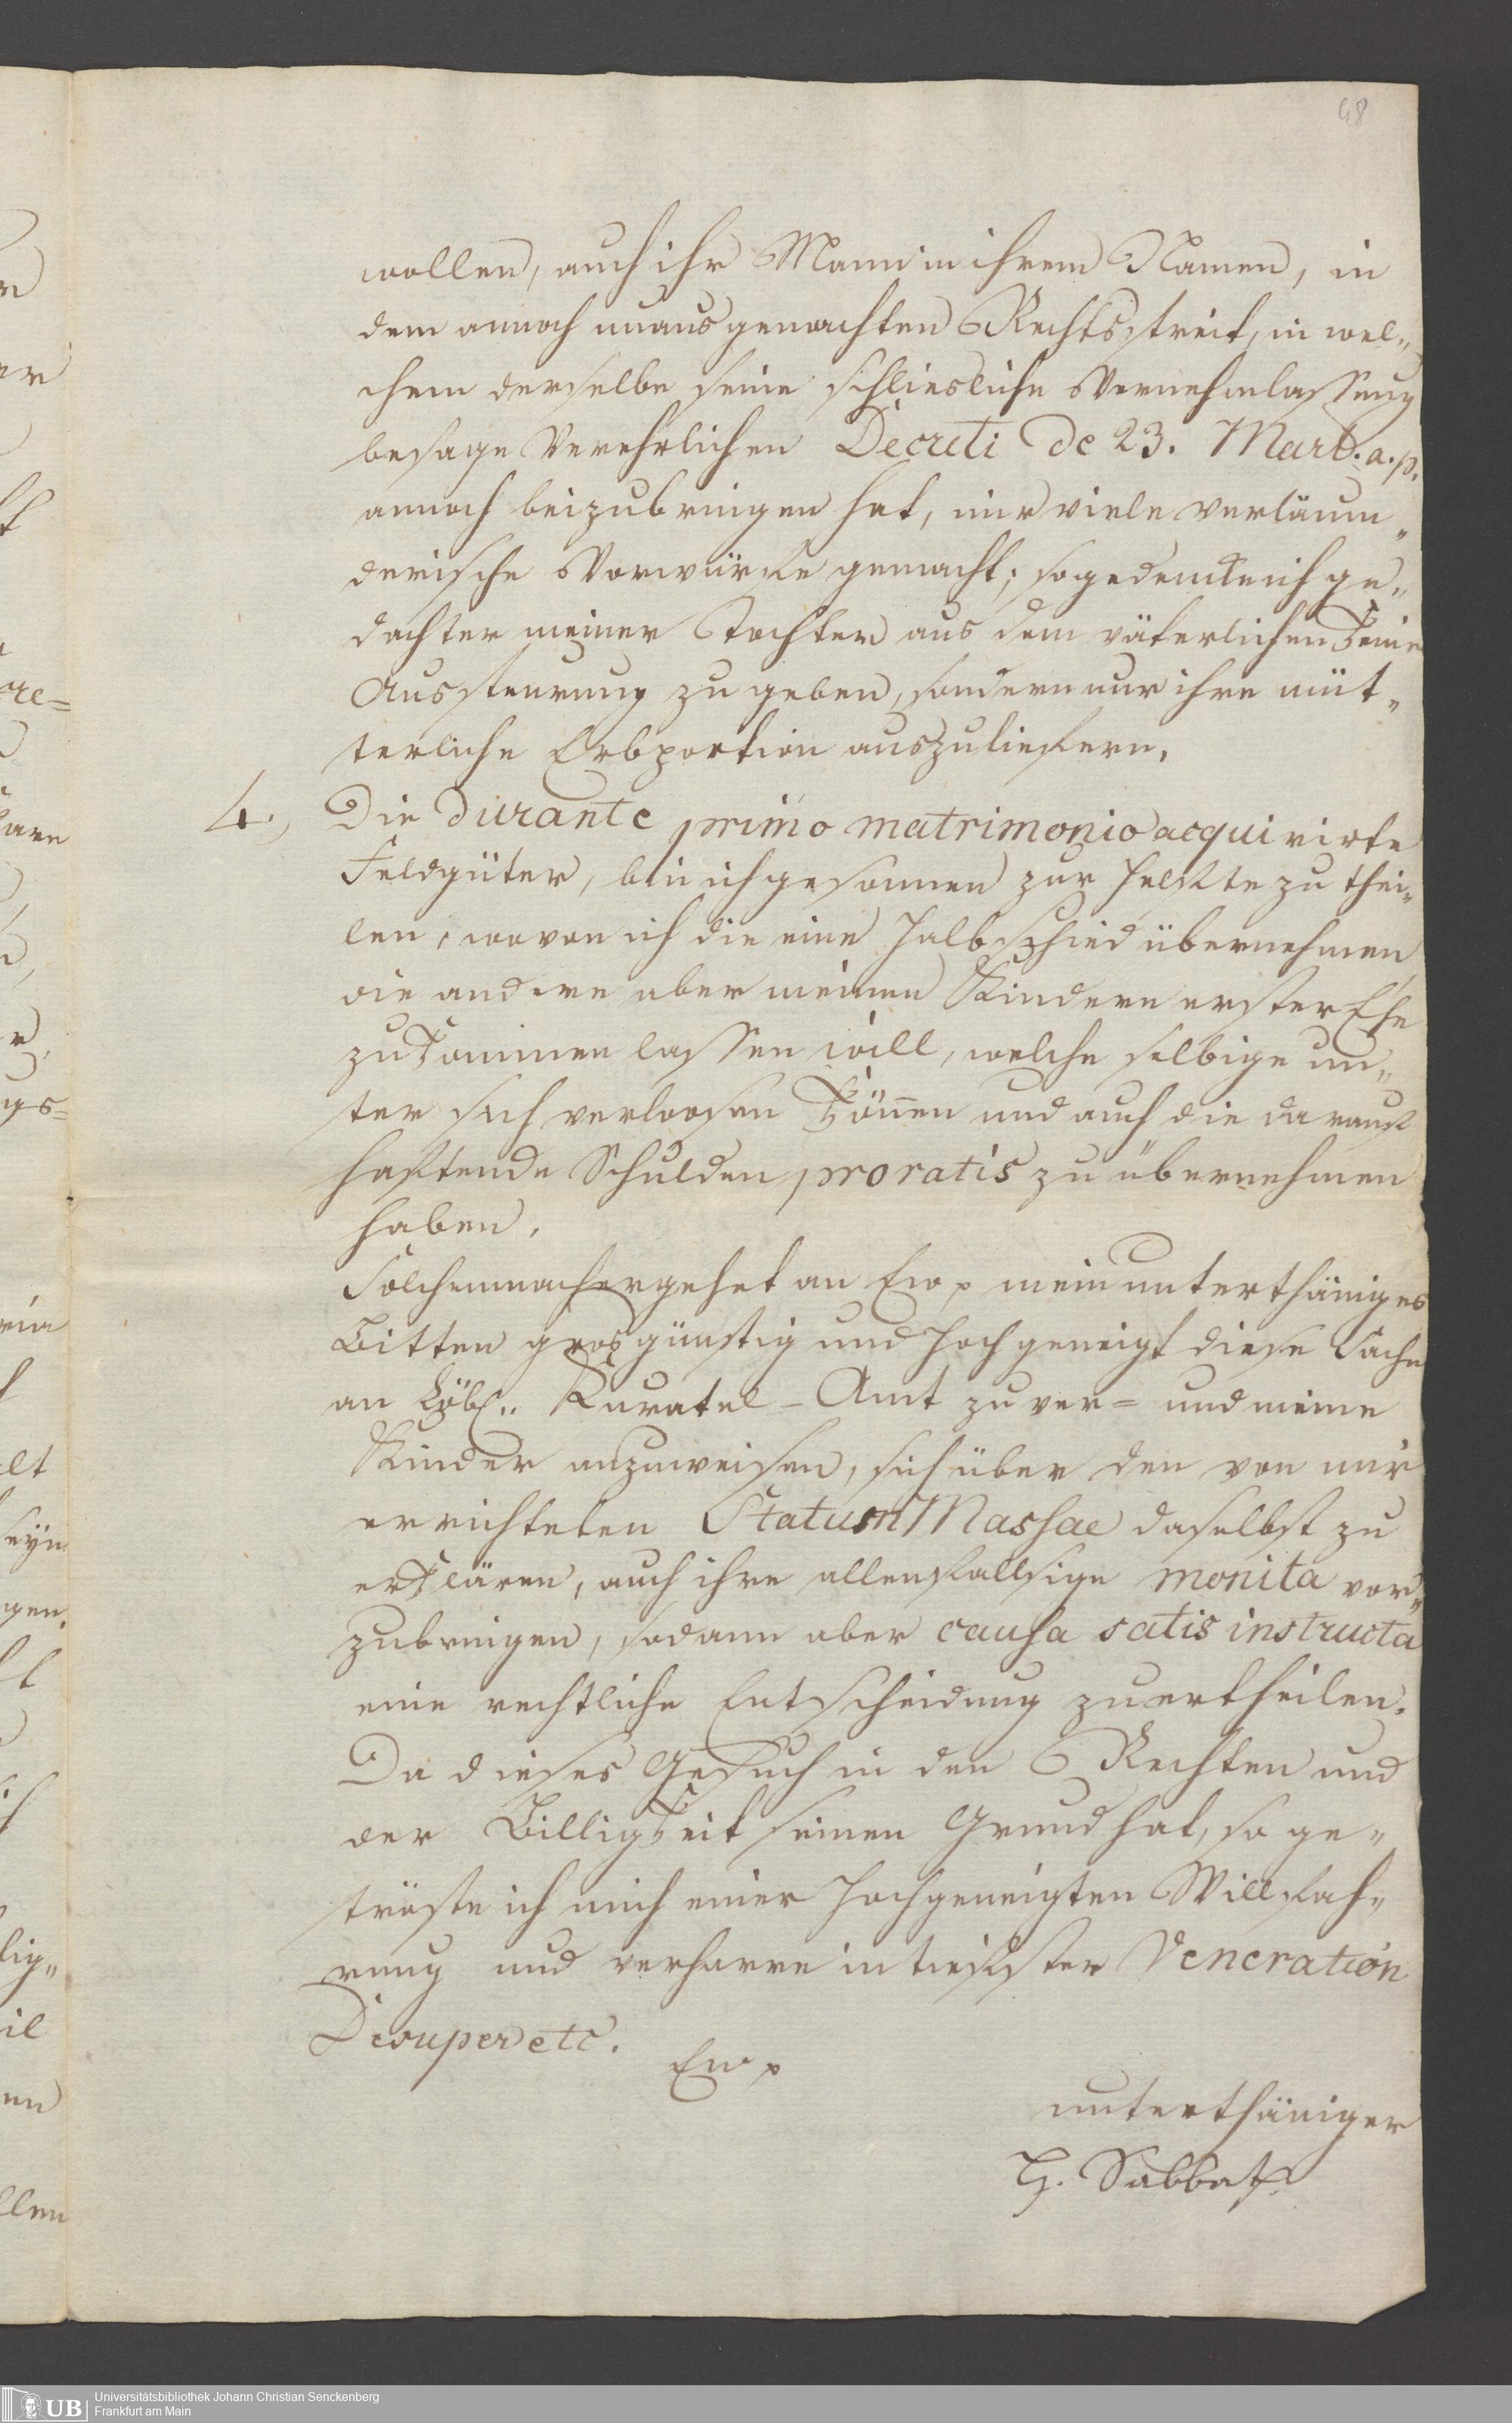 48
wollen, auch ihr Mann in ihrem Namen, in
dem annoch unausgemachten Rechtsstreit, in wel„
chem derselbe seine schliesliche Vernehmlassung
besage Verehrlichen Decreti de 23. Mart. a. p.
annoch beizubringen hat, mir viele verläum„
derische Vorwürfe gemacht; so gedenke ich ge„
dachter meiner Tochter aus dem väterlichen keine
Aussteurung zu geben, sondern nur ihre müt„
terliche Erbportion auszuliefern.
4., Die durante primo matrimonio acquirirte
Feldgüter, bin ich gesonnen zur Helfte zu thei„
len, wovon ich die eine Halbschied übernehmen,
die andere aber meinen Kindern erster Ehe
zukommen lassen will, welche selbige un„
ter sich verloosen können und auch die darauf
haftende Schulden pro ratis zu übernehmen
haben.
Solchemnach ergehet an Ew. p mein unterthäniges
Bitten grosgünstig und hochgeneigt diese Sache
an Löbl. Kuratel-Amt zu ver= und meine
Kinder anzuweisen, sich über den von mir
errichteten Statum Massae daselbst zu
erklären, auch ihre allenfallsige monita vor„
zubringen, sodann aber causa satis instructa
eine rechtliche Entscheidung zu ertheilen.
Da dieses Gesuch in den Rechten und
der Billigkeit seinen Grund hat, so ge„
tröste ich mich einer hochgeneigten Willfah„
rung und verharre in tiefster Veneration
Desuper etc.
Ew. p
unterthäniger
H. Sabbath
UB
Universitätsbibliothek Johann Christian Senckenberg
Frankfurt am Main